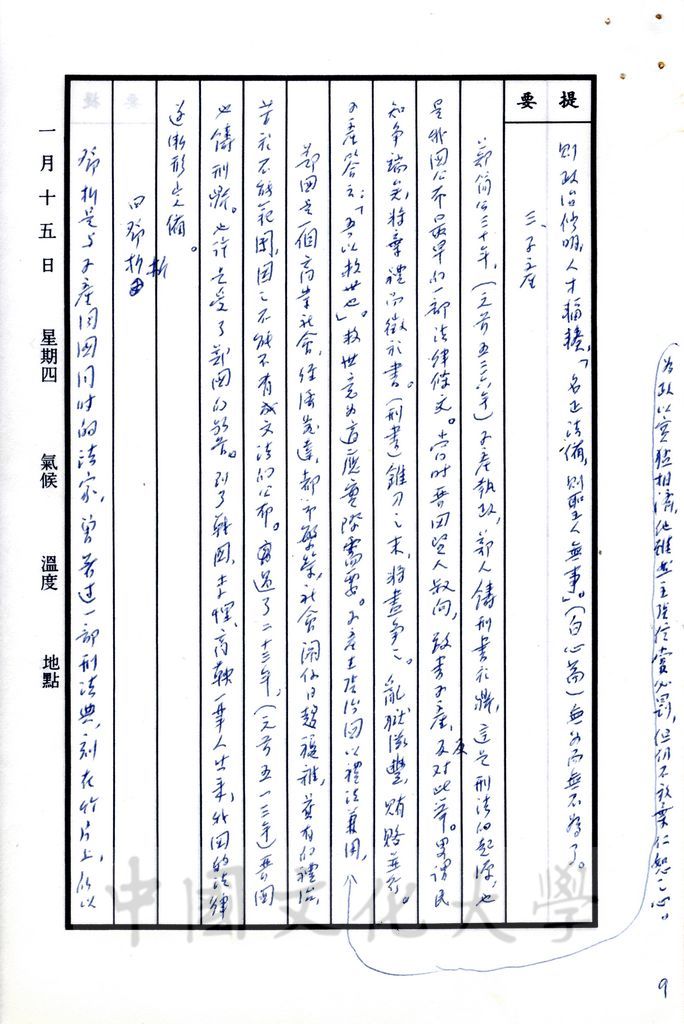 為政以寬猛相濟,他雖也主張信賞必罰,但仍不放棄仁恕之心。
提要
則政治修明,人才輻輳,「名正法備,則聖人無事」。(白心篇)無為而無不為了。
三、子產
鄭簡公三十年,(元前五三六年)子產執政,鄭人鑄刑書於鼎,這是刑法的起源,也
是我國公布最早的一部法律條文。當時晉國賢人叔向,致書子產,反對此舉。略謂民
知爭端矣,將棄禮而徵於書。(刑書)錐刀之末,將盡爭之。亂獄滋豐,賄賂並行。
子產答云:「吾以救世也」。救世意為適應實際需要。子產主張治國以禮法兼用,
鄭國是一個商業社會,經濟發達,都市繁榮,社會關係日趨複雜,舊有的禮治
苦於不能範圍,因之不能不有成文法的公布。再過了二十三年,(元前五一三年)晉國
也鑄刑鼎。也許是受了鄭國的影響。到了韓國,李悝、商鞅一輩人出來,我國的法律
逐漸形完備。
四鄧析
鄧析是與子產同國同時的法家,曾著過一部刑法典,刻在竹片上,所以
一月十五日 星期四 氣候 溫度 地點
中國文化大學
9